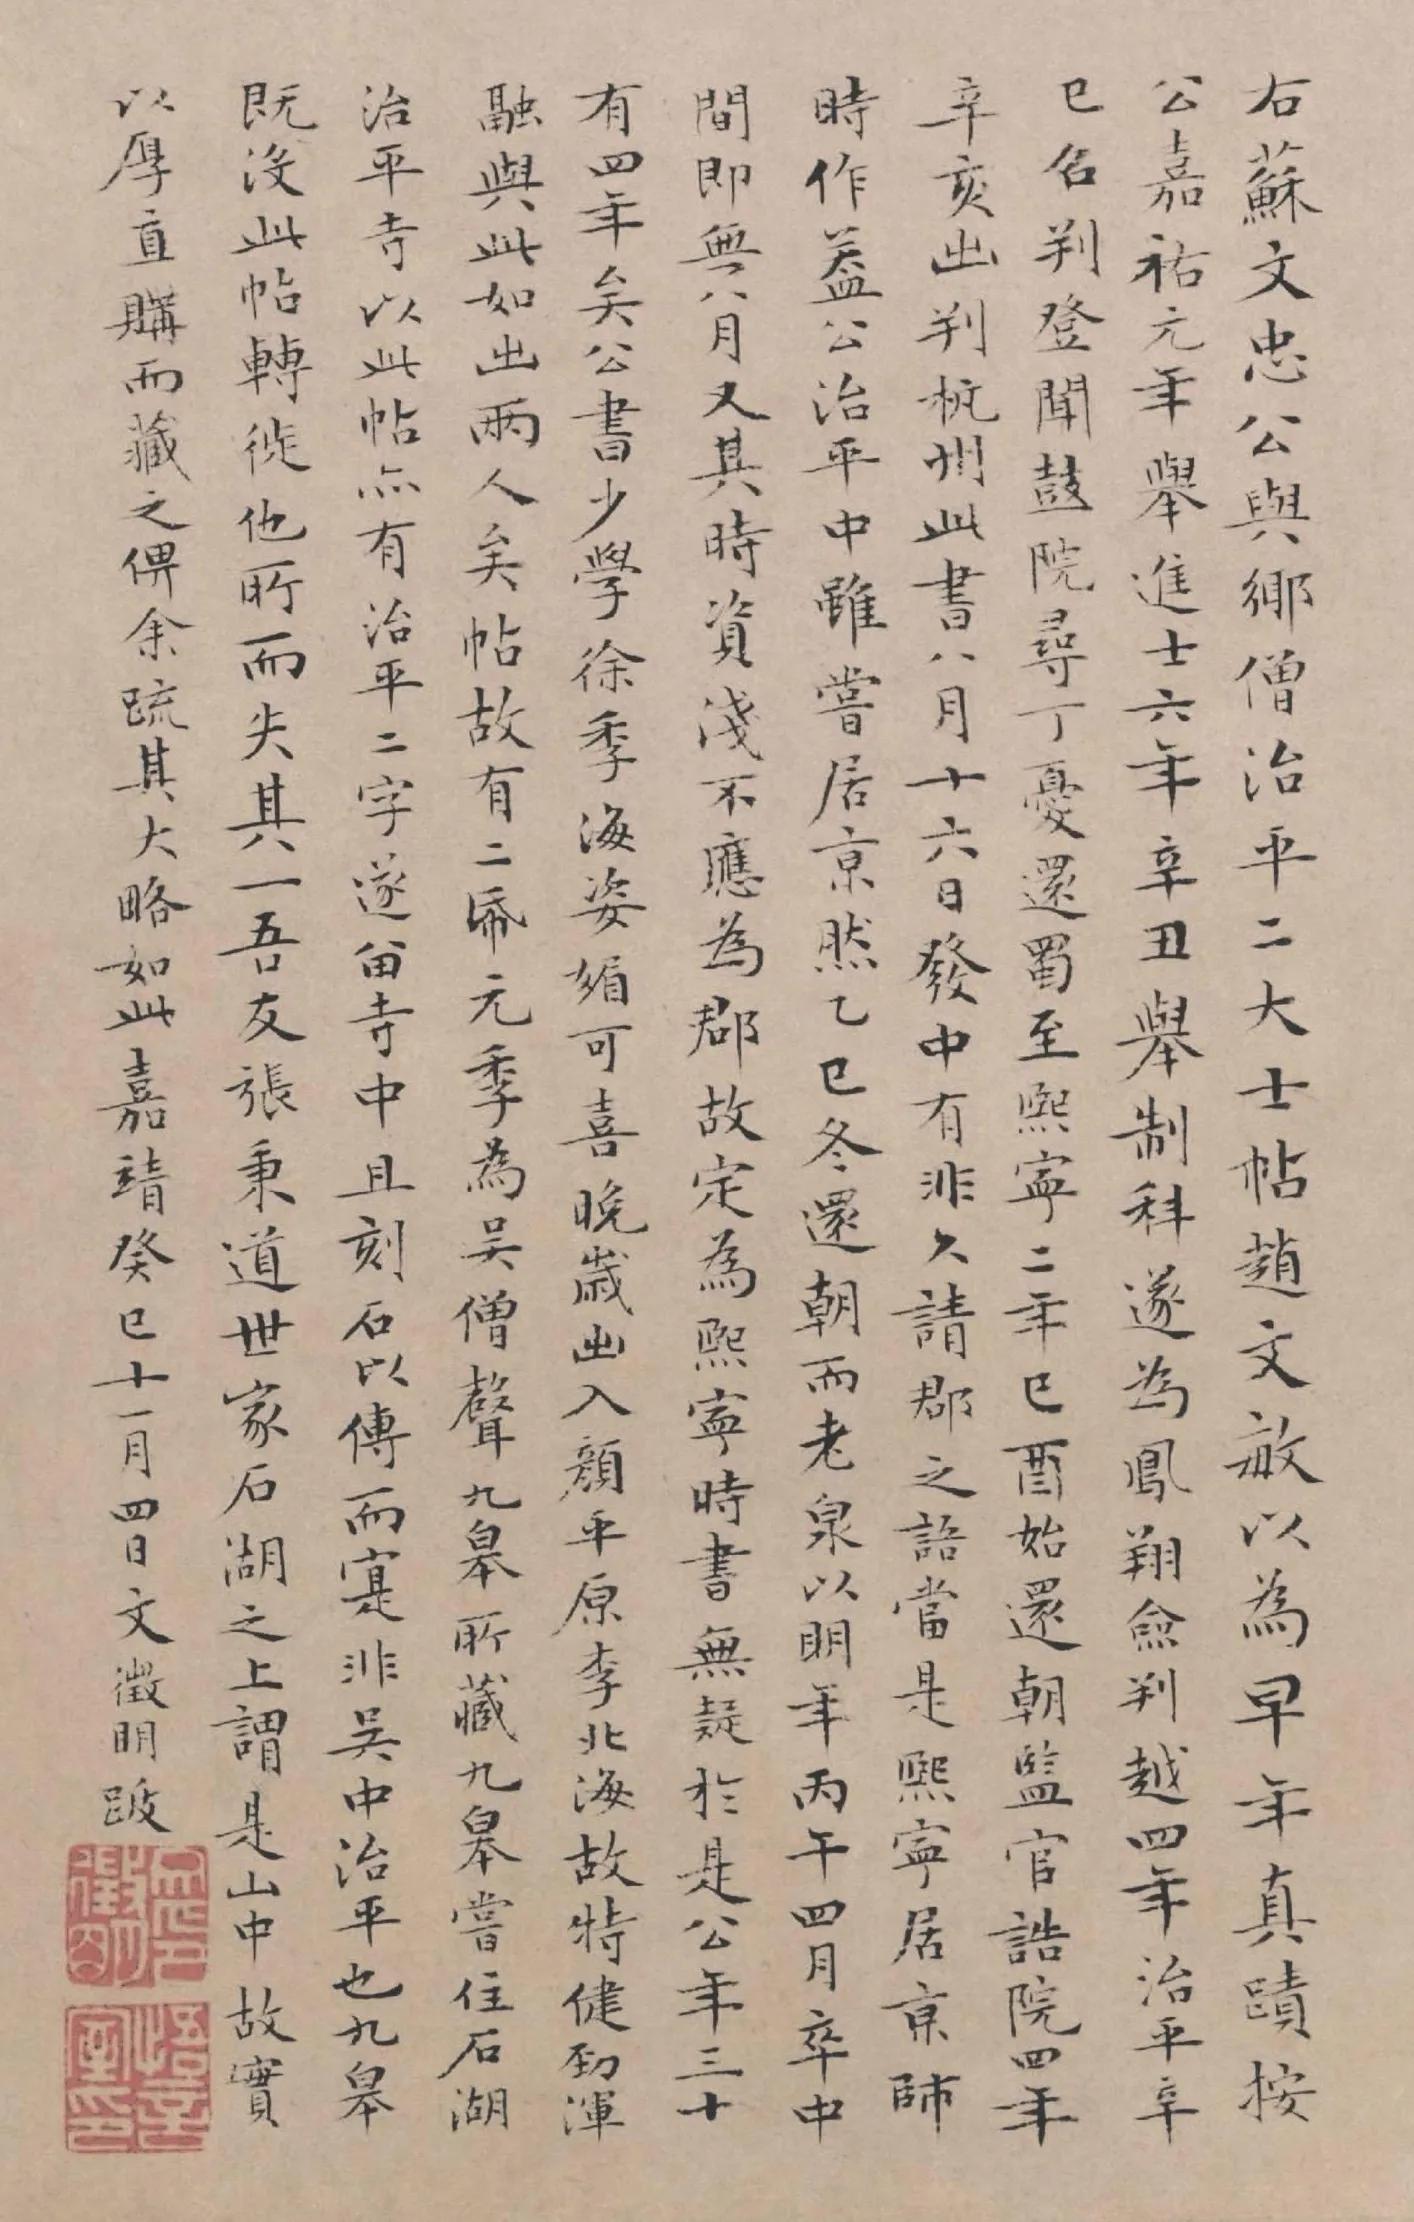 右蘇文忠公與鄉僧治平二大士帖趙文敏以為早年真蹟按
公嘉祐元年舉進士六年辛丑舉制科遂為鳳翔僉判越四年治平辛
巳名判登聞鼓院尋丁憂還蜀至熙寧二年己酉始還朝監官誥院四年
辛亥出判杭州此書八月十六日發中有非久請郡之語當是熙寧居京師
時作葢公治平中雖嘗居京然乙巳冬還朝而老泉以明年丙午四月卒中
間即無八月又其時資淺不應為郡故定為熙寧時書無疑於是公年三十
有四年矣公書少學徐季海姿媚可喜晚歲出入顏平原李北海故特健勁渾
融與此如出兩人矣帖故有二帋元季為吴僧聲九皋所藏九皋嘗住石湖
治平寺以此帖亦有治平二字遂留寺中且刻石以傳而寔非吴中治平也九皋
既沒此帖轉徙他所而失其一吾友張秉道世家石湖之上謂是山中故實
以厚直購而藏之俾余疏其大略如此嘉靖癸巳十一月四日文徵明跋
徵明
悟言室印